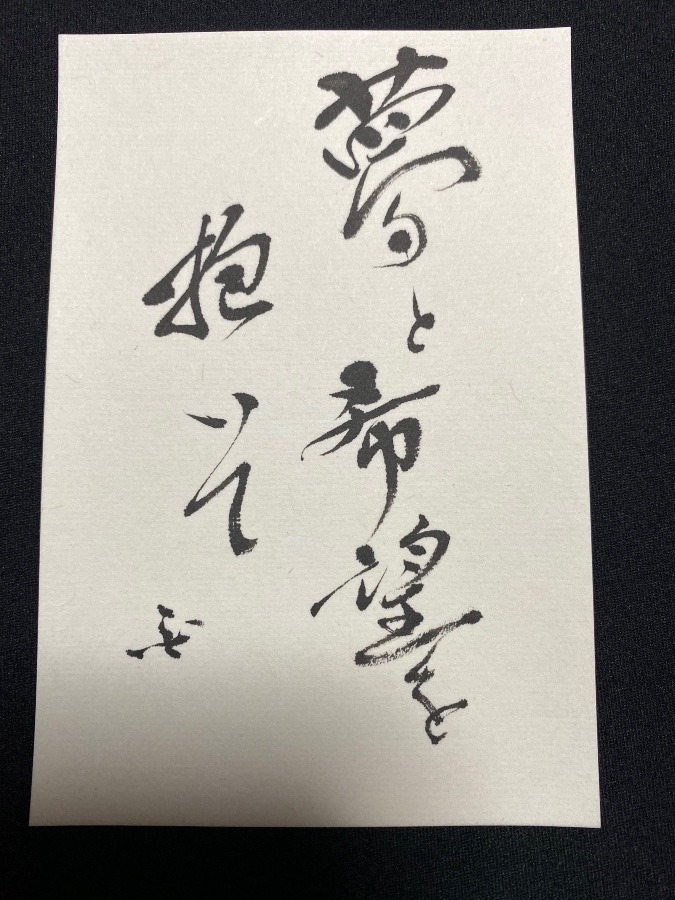 夢と希望を
抱いて